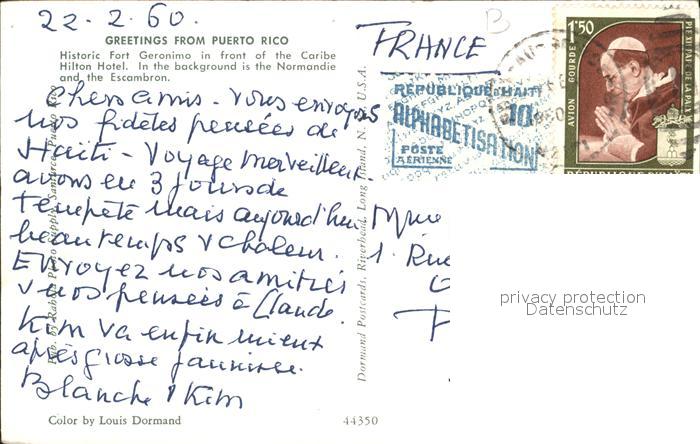 22.2.60.
GREETINGS FROM PUERTO RICO
Historic Fort Geronimo in front of the Caribe
Hilton Hotel. In the background is the Normandie
and the Escambron.
Chers amis - vous envoyons
nos fidèles pensées de
Haiti - Voyage merveilleux.
avons eu 3 jours de
tempête mais aujourd'hui
beau temps & chaleur.
Envoyez nos amitiés
& nos pensées à Claude.
Kim va enfin mieux
après grosse jaunisse.
Blanche & Kim
Color by Louis Dormand
44350
Dormand Postcards, Riverhead, Long Island, N. Y., U.S.A.
FRANCE
B
RÉPUBLIQUE D'HAITI
10c
ALPHABETISATION
POSTE
AÉRIENNE
1.50
GOURDE
AVION
PIE XII PAPE DE LA PAIX
Mme
1. Rue
privacy protection
Datenschutz